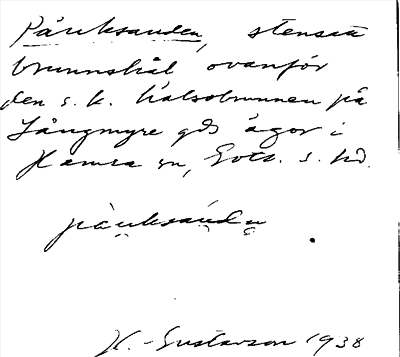 Päuksanden, stensatt
brunnshål ovanför
den s.k. hälsobrunnen på
Långmyre gds ägor i
Hamra sn, Gotl. s. hd.
päuksandn
H. Gustavson 1938